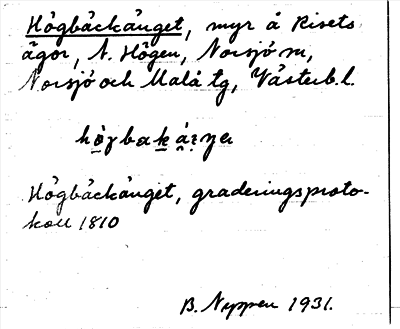 Högbäckänget, myr å Risets
ägor, N. Högen, Norsjö sn,
Norsjö och Malå tg, Västerb. l.
Högbäckänget, graderingsproto-
koll 1810
B. Nyppen 1931.